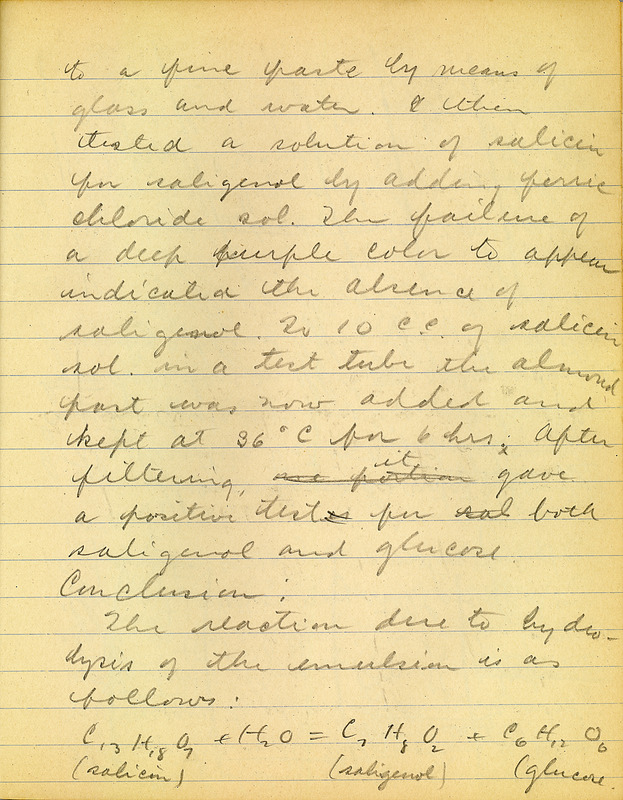 to a fine paste by means of
glass and water. I then
tested a solution of salicin
for saligenol by adding ferric
chloride sol. The failure of
a deep purple color to appear
indicated the absence of
saligenol. To 10 C.C. of salicin
sol. in a test tube the almond
past was now added and
kept at 36°C for 6 hrs. After
filtering, one portion it gave
a positive tests for sal both
saligenol and glucose
Conclusion:
The reaction due to hydro-
lysis of the emulsion is as
follows:
C₁₃H₁₈O₇ + H₂O = C₇H₈O₂ + C₆H₁₂O₆
(salicin) (saligenol) (glucose